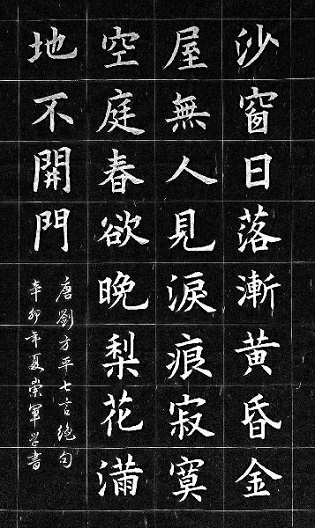 沙窗日落漸黃昏金
屋無人見淚痕寂寞
空庭春欲晚梨花滿
地不開門
唐劉方平七言絕句
辛卯年夏崇軍學書